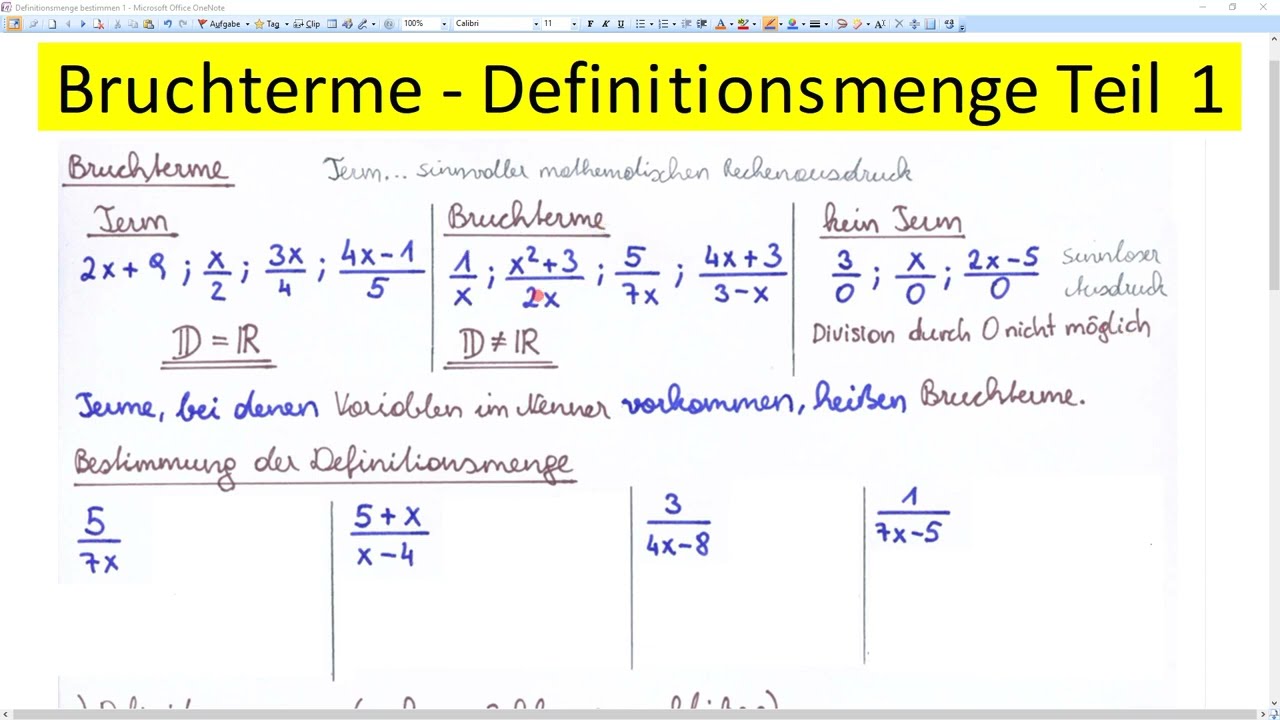 Definitionsmenge bestimmen 1 - Microsoft Office OneNote
Aufgabe Tag Clip 100% Calibri 11 F K U
Bruchterme - Definitionsmenge Teil 1
Bruchterme Term... sinnvoller mathematischen Rechenausdruck
Term Bruchterme kein Term
2x + 9 ; x/2 ; 3x/4 ; 4x-1/5 1/x ; x²+3/2x ; 5/7x ; 4x+3/3-x 3/0 ; x/0 ; 2x-5/0 sinnloser Ausdruck
𝔻 = ℝ 𝔻 ≠ ℝ Division durch 0 nicht möglich
Terme, bei denen Variablen im Nenner vorkommen, heißen Bruchterme.
Bestimmung der Definitionsmenge
5/7x 5+x/x-4 3/4x-8 1/7x-5